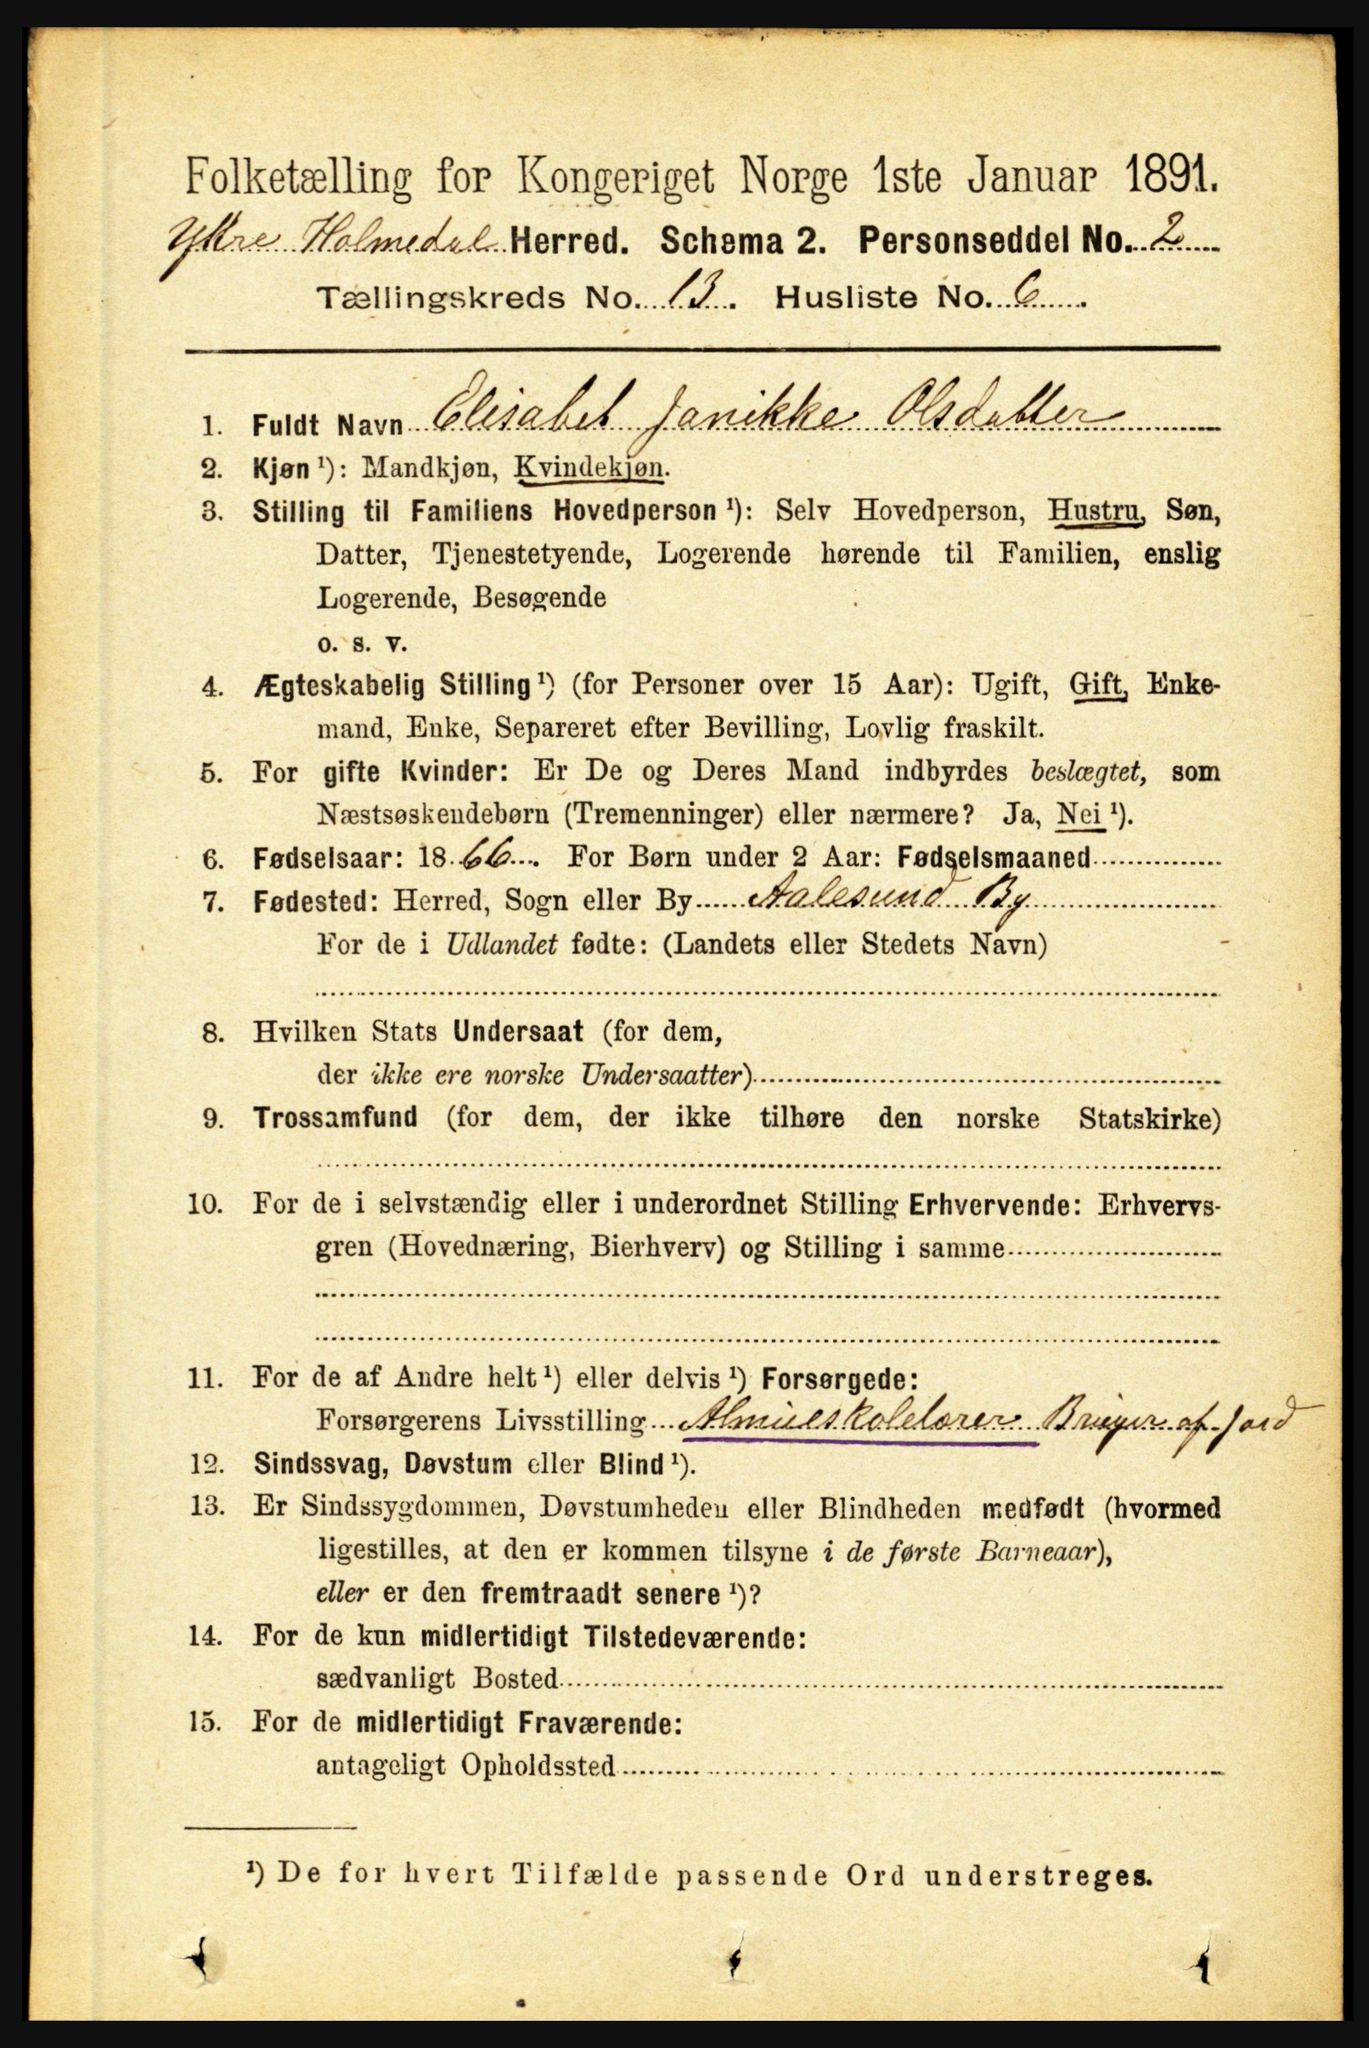 Folketælling for Kongeriget Norge 1ste Januar 1891.
Ytre Holmedal Herred. Schema 2. Personseddel No. 2
Tællingskreds No. 13. Husliste No. 6.
1. Fuldt Navn Elisabet Janikke Olsdatter
2. Kjøn ¹): Mandkjøn, Kvindekjøn.
3. Stilling til Familiens Hovedperson ¹): Selv Hovedperson, Hustru, Søn,
Datter, Tjenestetyende, Logerende hørende til Familien, enslig
Logerende, Besøgende
o. s. v.
4. Ægteskabelig Stilling ¹) (for Personer over 15 Aar): Ugift, Gift, Enke-
mand, Enke, Separeret efter Bevilling, Lovlig fraskilt.
5. For gifte Kvinder: Er De og Deres Mand indbyrdes beslægtet, som
Næstsøskendebørn (Tremenninger) eller nærmere? Ja, Nei ¹).
6. Fødselsaar: 1866. For Børn under 2 Aar: Fødselsmaaned
7. Fødested: Herred, Sogn eller By Aalesund By
For de i Udlandet fødte: (Landets eller Stedets Navn)
8. Hvilken Stats Undersaat (for dem,
der ikke ere norske Undersaatter)
9. Trossamfund (for dem, der ikke tilhøre den norske Statskirke)
10. For de i selvstændig eller i underordnet Stilling Erhvervende: Erhvervs-
gren (Hovednæring, Bierhverv) og Stilling i samme
11. For de af Andre helt ¹) eller delvis ¹) Forsørgede:
Forsørgerens Livsstilling Almueskolelærer Bruger af Jord
12. Sindssvag, Døvstum eller Blind ¹).
13. Er Sindssygdommen, Døvstumheden eller Blindheden medfødt (hvormed
ligestilles, at den er kommen tilsyne i de første Barneaar),
eller er den fremtraadt senere ¹)?
14. For de kun midlertidigt Tilstedeværende:
sædvanligt Bosted
15. For de midlertidigt Fraværende:
antageligt Opholdssted
¹) De for hvert Tilfælde passende Ord understreges.